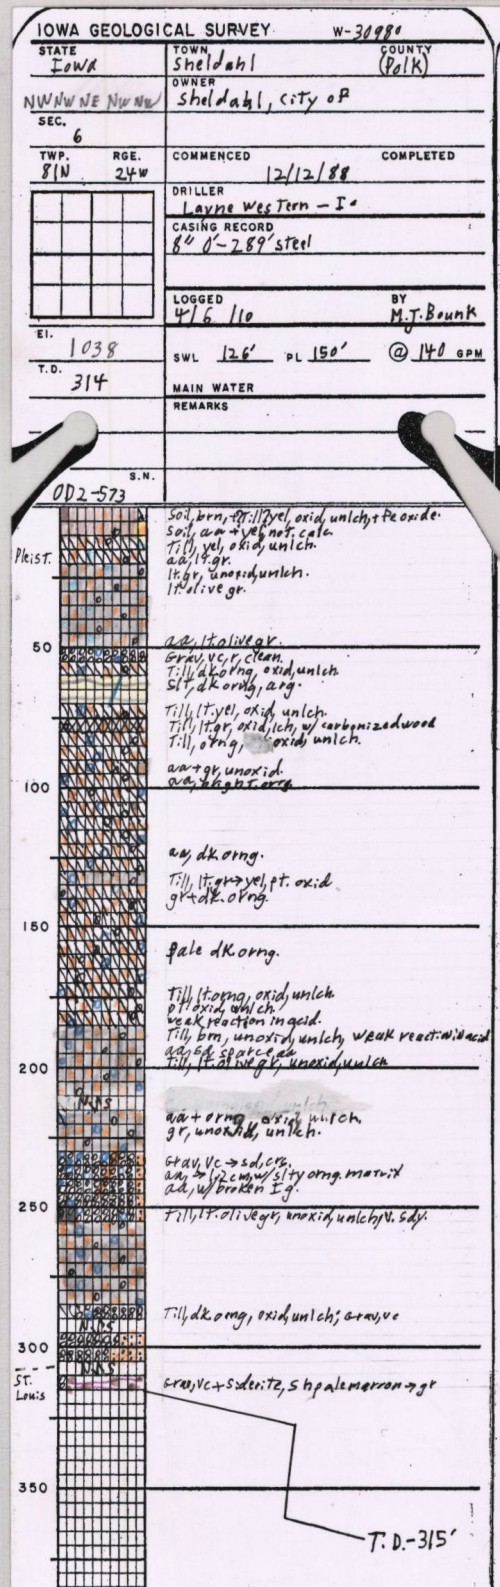 IOWA GEOLOGICAL SURVEY W-30980
STATE TOWN COUNTY
Iowa Sheldahl (Polk)
OWNER
NWNWNE NWNW Sheldahl, City of
SEC.
6
TWP. RGE. COMMENCED COMPLETED
81N 24W 12/12/88
DRILLER
Layne Western - I
CASING RECORD
8" 0'-289' steel
LOGGED BY
4/6/10 M.J. Bounk
El. 1038
SWL 126' PL 150' @ 140 GPM
T.D. 314
MAIN WATER
REMARKS
S.N.
OD2-573
Soil, brn, + Till? yel, oxid, unlch, + Fe oxide.
Soil, aa + yel, not. calc
Till, yel, oxid, unlch.
Pleist.
aa, lt.gr.
lt.gr, unoxid, unlch.
lt.olive gr.
aa, lt.olive gr.
50
Grav, vc, r, clean.
Till, dk orng, oxid, unlch.
Slt, dk orng, arg.
Till, lt.yel, oxid, unlch.
Till, lt.gr, oxid, lch, w/ carbonized wood
Till, orng, oxid, unlch.
aa + gr, unoxid.
aa, bright orng
100
aa, dk orng.
Till, lt.gr→yel, pt. oxid
gr + dk. orng.
150
Pale dk orng.
Till, lt.orng, oxid, unlch.
pt. oxid, unlch
weak reaction in acid.
Till, brn, unoxid, unlch, weak reaction in acid
aa, sd, sparce aa
200
Till, lt.olive gr, unoxid, unlch
N.S
aa + orng, oxid, unlch.
gr, unoxid, unlch.
Grav, vc → sd, crs.
aa, → 1.2cm, w/ slty orng. matrix
aa, w/ broken Ig.
250
Till, lt.olive gr, unoxid, unlch, v. sdy.
Till, dk orng, oxid, unlch; Grav, vc
N.S
300
N.S
St. Louis
Grav, vc + Siderite, Sh pale marron → gr
350
T.D.-315'